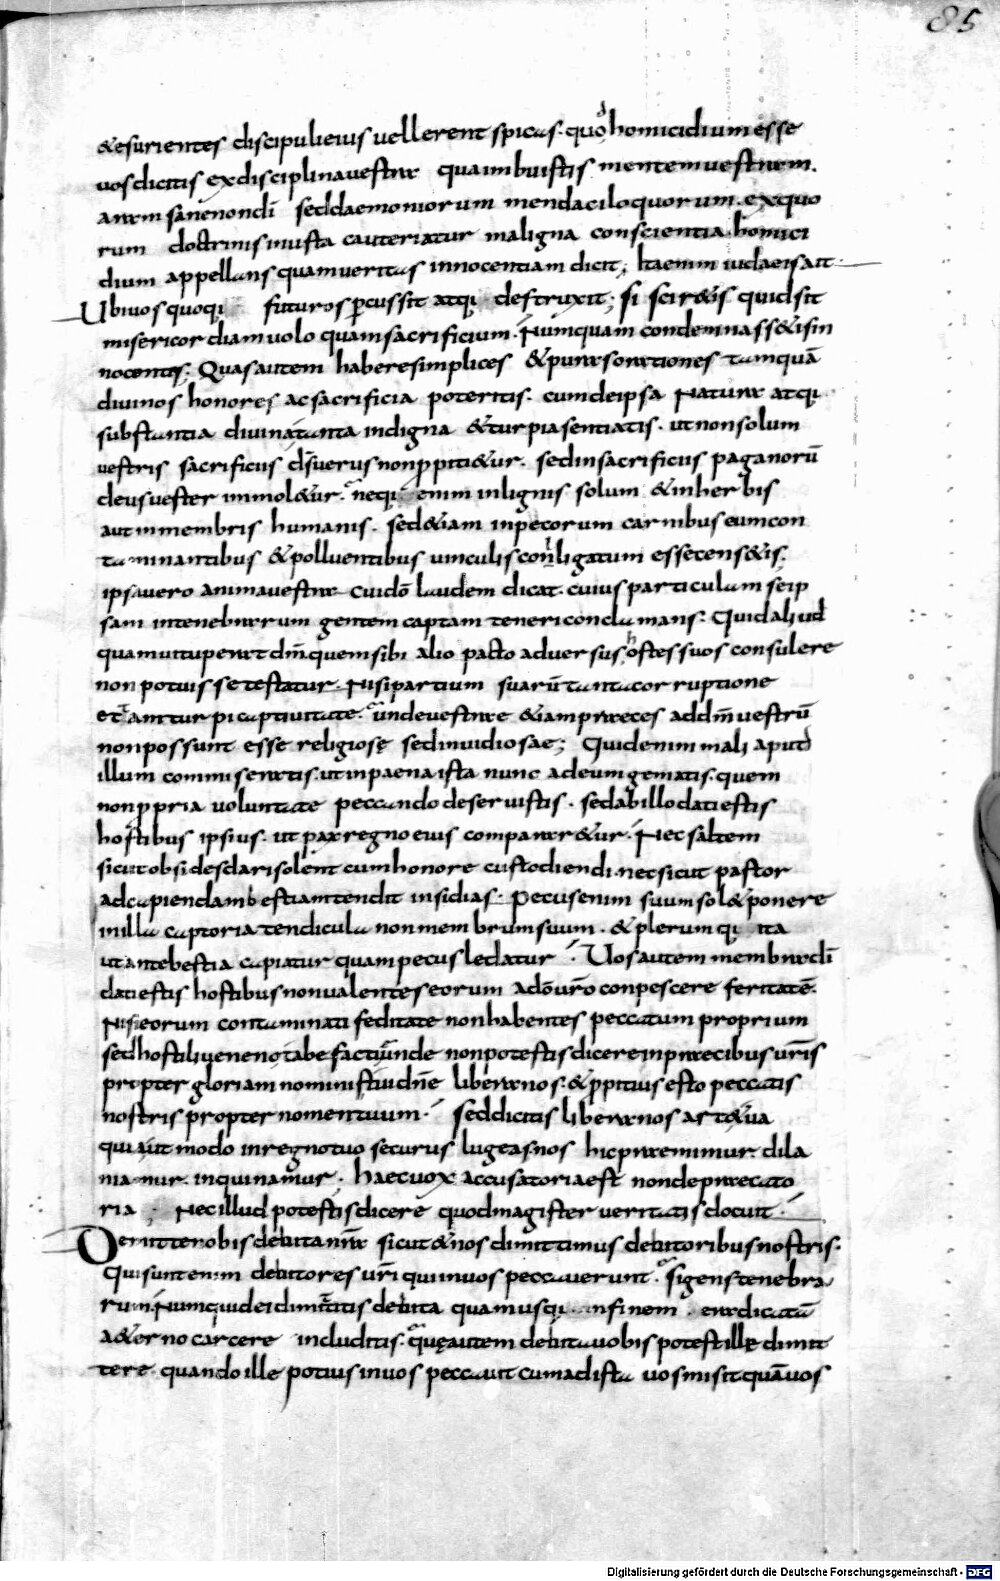 85
&esurientes discipuli eius uellerent spicas. quod homicidium esse
uos dicitis ex disciplina uestra qua imbuistis mentem uestram.
aram sane non di sed daemoniorum mendaciloquorum. ex quo
rum doctrinis inusta cauteriatur maligna conscientia. homici
dium appellans quam ueritas innocentiam dicit; Ita enim iudaeis ait.
Ubi uos quoq; futuros pcussit atq; destruxit; si scir&is quid sit
misericordiam uolo quam sacrificium. Numquam condemnass&is in
nocentes. Quas autem habere simplices & puras orationes tamquā
diuinos honores ac sacrificia poteritis. cum de ipsa natura atq;
substantia diuina tanta indigna & turpia sentiatis. ut non solum
uestris sacrificiis ds uerus non ppiti&ur. sed in sacrificiis paganorū
deus uester immol&ur. neq; enim in lignis solum & in herbis
aut in membris humanis. sed &iam in pecorum carnibus eum con
taminantibus & polluentibus uinculis conligatum esse cens&is.
ipsa uero anima uestra cui dō laudem dicat. cuius particulam se ip
sam in tenebrarum gentem captam teneri conclamans. Quid aliud
quam uituperat dm̄ quem sibi alio pacto aduersus hostes suos consulere
non potuisse testatur. Nisi partium suarū tanta corruptione
et tam turpi captiuitate. unde uestrae &iam praeces ad dm̄ uestrū
non possunt esse religiosę sed inuidiosae; Quid enim mali aput
illum commiseratis. ut in paena ista nunc ad eum gematis. quem
non ppria uoluntate peccando deseruistis. sed ab illo dati estis
hostibus ipsius. ut pax regno eius compar&ur. Nec saltem
sicut obsides dari solent cum honore custodiendi. nec sicut pastor
ad capiendam bestiam tendit insidias. Pecus enim suum sol& ponere
in illa captoria tendicula non membrum suum. & plerumq; ita
ut ante bestia capiatur quam pecus ledatur. Uos autem membra di
dati estis hostibus non ualentes eorum a dō urō conpescere feritatē.
Nisi eorum contaminati feditate non habentes peccatum proprium
sed hostili ueneno tabefacti. unde non potestis dicere in praecibus uris
propter gloriam nominis tui dne libera nos. & ppitius esto peccatis
nostris propter nomen tuum. Sed dicitis libera nos arte tua
qui aut modo in regno tuo securus lugeas nos hic praemimur. dila
niamur. inquinamur. haec uox accusatoria est non depraecato
ria; Nec illud potestis dicere quod magister ueritatis docuit.
Demitte nobis debita nra sicut & nos dimittimus debitoribus nostris.
Qui sunt enim debitores uri qui in uos peccauerunt. si gens tenebra
rum. Numquid ei dimittitis debita quam usq; in finem eradicatā
a&erno carcere includitis. quę autem debita uobis potest ille dimit
tere. quando ille potius in uos peccauit cum ad ista uos misit quā uos
Digitalisierung gefördert durch die Deutsche Forschungsgemeinschaft - DFG